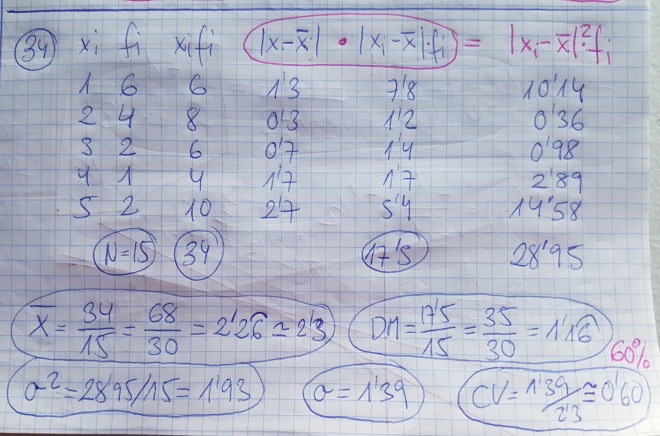 34 xi fi xifi |x-x̄| • |xi-x̄|·fi = |xi-x̄|²·fi
1 6 6 1'3 7'8 10'14
2 4 8 0'3 1'2 0'36
3 2 6 0'7 1'4 0'98
4 1 4 1'7 1'7 2'89
5 2 10 2'7 5'4 14'58
N=15 34 17'5 28'95
X̄ = 34/15 = 68/30 = 2'26̂ ≃ 2'3 DM = 17'5/15 = 35/30 = 1'16̂
60%
σ² = 28'95/15 = 1'93 σ = 1'39 CV = 1'39/2'3 ≅ 0'60